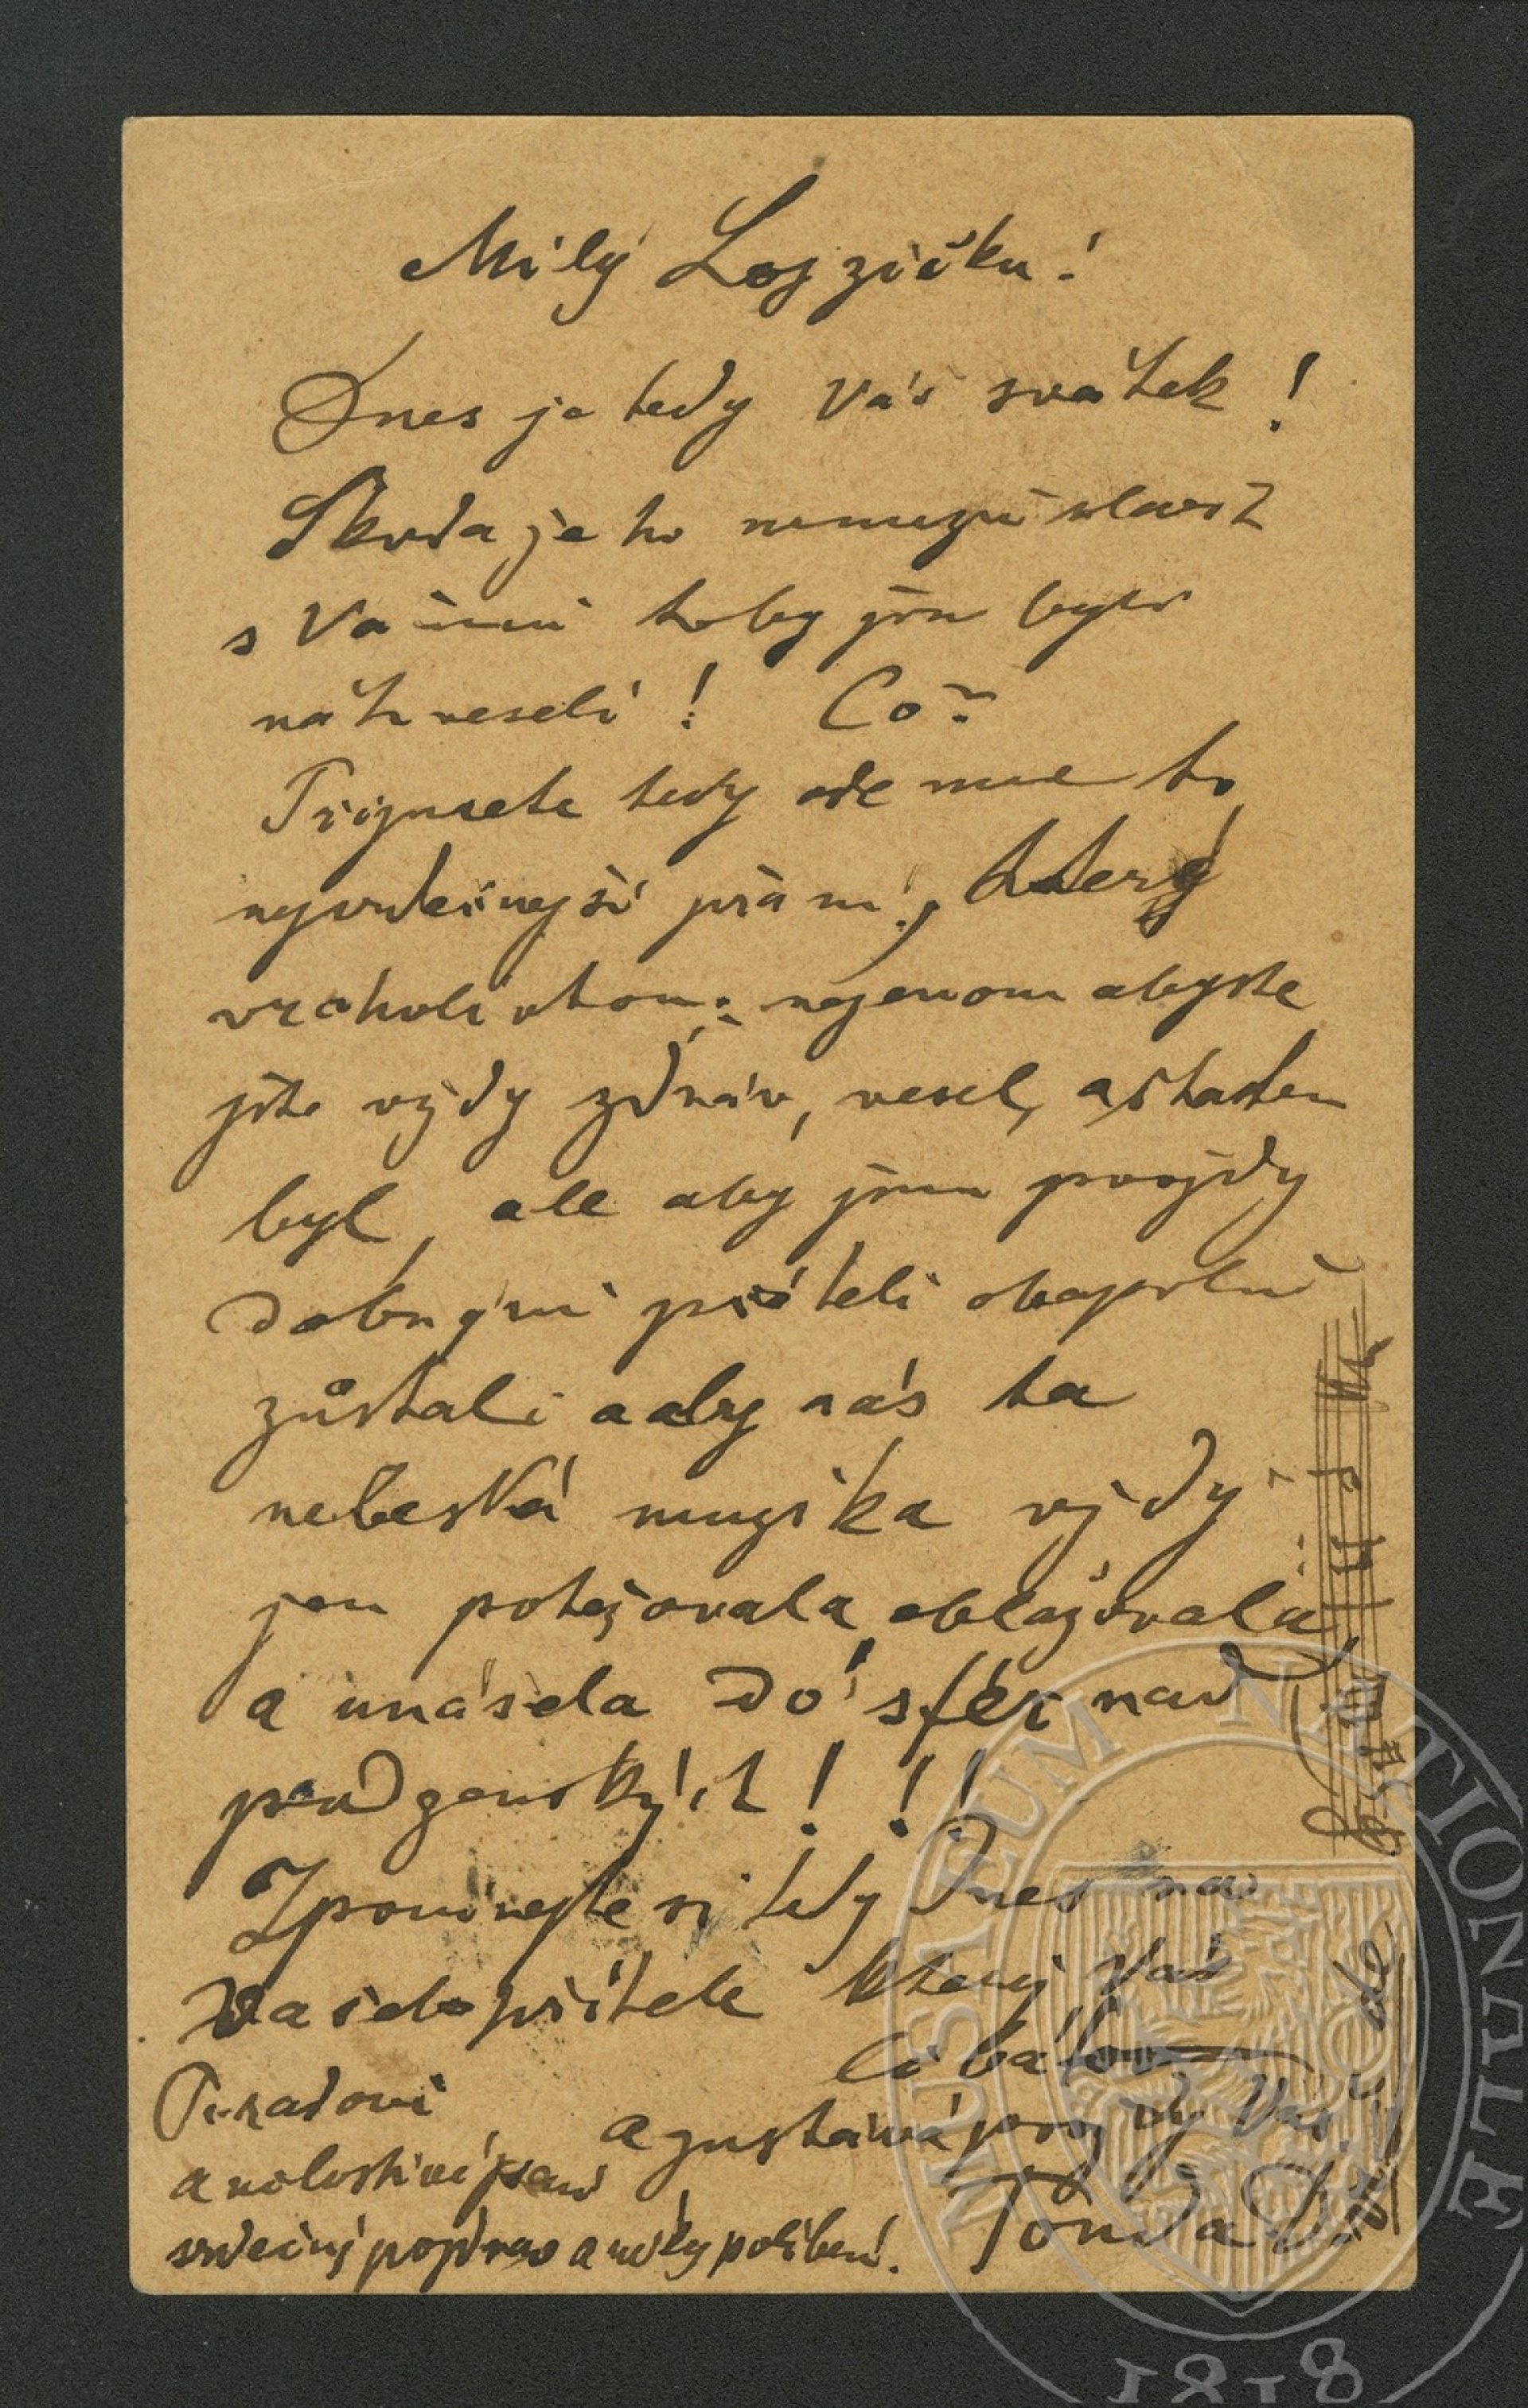 Milý Lojzíčku!
Dnes je tedy Váš svátek!
Škoda je to nemuzu slavit
s Vámi to by jsme byli
veselí! Co?
Přijmete tedy ode mne to
nejsrdečnejší přání, který
vrcholí v tom: nejenom abyste
jste vždy zdráv, vesel, a štasten
byl, ale aby jsme povždy
dobrými přáteli obapolně
zůstali a aby nás ta
nebeská muzika vždy
jen potěšovala, oblažovala
a unásela do sfér nad
pozemských!!!
Zpomínejte si tedy dnes na
Vašeho přítele který Vás
líbá
a zustává povždy Váš
Tonda
a milostivé paní
srdečný pozdrav a políbení.
MUSAEUM NATIONALE
1818